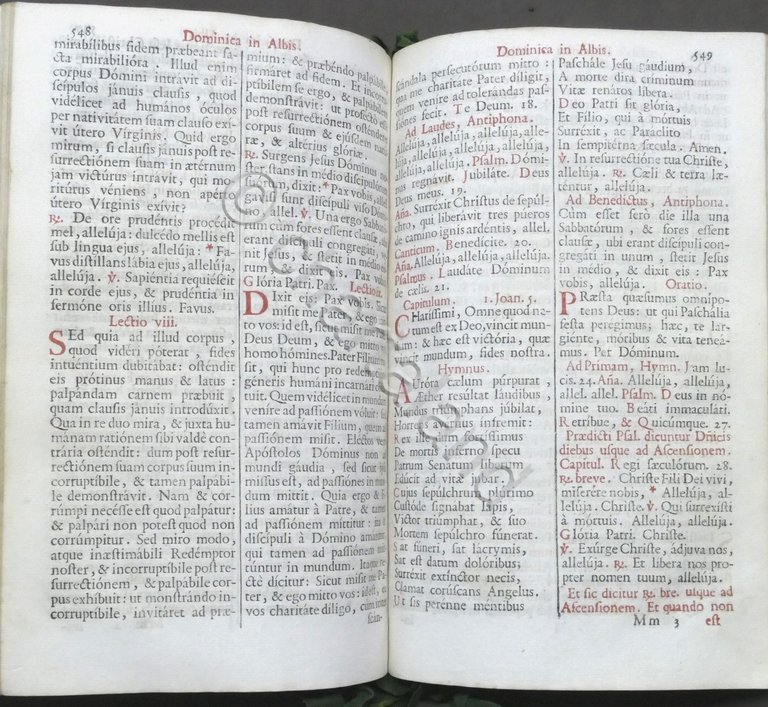 548
Dominica in Albis.
mirabílibus fidem præbeant fa-
cta mirabilióra. Illud enim
corpus Dómini intrávit ad di-
scípulos jánuis clausis, quod
vidélicet ad humános óculos
per nativitátem suam clauso exí-
vit útero Vírginis. Quid ergo
mirum, si clausis jánuis post re-
surrectiónem suam in ætérnum
jam victúrus intrávit, qui mo-
ritúrus véniens, non apérto
útero Vírginis exívit?
℟. De ore prudéntis procédit
mel, allelúja: dulcédo mellis est
sub lingua ejus, allelúja: * Fa-
vus distíllans lábia ejus, allelúja,
allelúja. ℣. Sapiéntia requiéscit
in corde ejus, & prudéntia in
sermóne oris illíus. Favus.
Lectio viij.
SEd quia ad illud corpus,
quod vidéri póterat, fides
intuéntium dubitábat: osténdit
eis prótinus manus & latus:
palpándam carnem præbuit,
quam clausis jánuis introdúxit.
Qua in re duo mira, & juxta hu-
mánam ratiónem sibi valdè con-
trária osténdit: dum post resur-
rectiónem suam corpus suum in-
corruptíbile, & tamen palpábi-
le demonstrávit. Nam & cor-
rúmpi necésse est quod palpátur:
& palpári non potest quod non
corrúmpitur. Sed miro modo,
atque inæstimábili Redémptor
noster, & incorruptíbile post re-
surrectiónem, & palpábile cor-
pus exhíbuit: ut monstrándo in-
corruptíbile, invitáret ad præ-
mium: & præbéndo palpábile,
firmáret ad fidem. Et incorru-
ptíbilem se ergo, & palpábilem
demonstrávit: ut profécto esse
post resurrectiónem osténderet
corpus suum & ejúsdem natú-
ræ, & altérius glóriæ.
℟. Surgens Jesus Dóminus no-
ster, stans in médio discipulórum
suórum, dixit: * Pax vobis, allel.
gavísi sunt discípuli viso Dómi-
no, allel. ℣. Una ergo Sabba-
tórum cùm fores essent clausæ, ubi
erant discípuli congregáti, ve-
nit Jesus, & stetit in médio eó-
rum, & dixit eis. Pax vobis.
Glória Patri. Pax. Lectio ix.
DIxit eis: Pax vobis. Sicut
misit me Pater, & ego mit-
to vos: id est, sicut misit me Pater
Deus Deum, & ego mitto vos
homo hómines. Pater Fílium mi-
sit, qui hunc pro redemptióne
géneris humáni incarnári consti-
tuit. Quem vidélicet in mundum
veníre ad passiónem vóluit: sed
tamen amávit Fílium, quem ad
passiónem misit. Eléctos verò
Apóstolos Dóminus non ad
mundi gáudia, sed sicut ipse
missus est, ad passiónes in mun-
dum mittit. Quia ergo & Fí-
lius amátur à Patre, & tamen
ad passiónem míttitur: ita &
discípuli à Dómino amántur,
qui tamen ad passiónem mit-
túntur in mundum. Itaque re-
ctè dícitur: Sicut misit me Pa-
ter, & ego mitto vos: id est, ea
vos charitáte díligo, cùm inter
scán-
Dominica in Albis.
549
scándala persecutórum mitto:
qua me charitáte Pater díligit,
quem veníre ad tolerándas pas-
siónes fecit. Te Deum. 18.
Ad Laudes, Antiphona.
Allelúja, allelúja, allelúja, alle-
lúja, allelúja, allelúja, allelúja,
allelúja, allelúja. Psalm. Dómi-
nus regnávit. Jubiláte. Deus
Deus meus. 19.
Aña. Surréxit Christus de sepúl-
chro, qui liberávit tres púeros
de camíno ignis ardéntis, allel.
Canticum. Benedícite. 20.
Aña. Allelúja, allelúja, allelúja.
Psalmus. Laudáte Dóminum
de cælis. 21.
Capitulum. 1. Joan. 5.
CHaríssimi, Omne quod na-
tum est ex Deo, vincit mun-
dum: & hæc est victória, quæ
vincit mundum, fides nostra.
Hymnus.
AUróra cælum púrpurat,
Æther resúltat láudibus,
Mundus triúmphans júbilat,
Horrens avérnus ínfremit:
Rex ille dum fortíssimus
De mortis inférno specu
Patrum Senátum líberum
Edúcit ad vitæ jubar.
Cujus sepúlchrum plúrimo
Custóde signábat lapis,
Victor triúmphat, & suo
Mortem sepúlchro fúnerat.
Sat fúneri, sat lácrymis,
Sat est datum dolóribus;
Surréxit extínctor necis,
Clamat corúscans Angelus.
Ut sis perénne méntibus
Paschále Jesu gáudium,
A morte dira críminum
Vitæ renátos líbera.
Deo Patri sit glória,
Et Fílio, qui à mórtuis
Surréxit, ac Paráclito
In sempitérna sæcula. Amen.
℣. In resurrectióne tua Christe,
allelúja. ℟. Cæli & terra læ-
téntur, allelúja.
Ad Benedictus, Antiphona.
Cùm esset serò die illa una
Sabbatórum, & fores essent
clausæ, ubi erant discípuli con-
gregáti in unum, stetit Jesus
in médio, & dixit eis: Pax
vobis, allelúja. Oratio.
PRæsta quæsumus omnípo-
tens Deus: ut qui Paschália
festa perégimus; hæc, te lar-
giénte, móribus & vita teneá-
mus. Per Dóminum.
Ad Primam, Hymn. Jam lu-
cis. 24. Aña. Allelúja, allelúja,
allel. allel. Psalm. Deus in nó-
mine tuo. Beáti immaculáti.
Retríbue, & Quicúmque. 27.
Prædicti Psal. dicuntur Dñicis
diebus usque ad Ascensionem.
Capitul. Regi sæculórum. 28.
℟. breve. Christe Fili Dei vivi,
miserére nobis, * Allelúja, al-
lelúja. Christe. ℣. Qui surrexísti
à mórtuis. Allelúja, allelúja.
Glória Patri. Christe.
℣. Exúrge Christe, ádjuva nos,
allelúja. ℟. Et líbera nos pro-
pter nomen tuum, allelúja.
Et sic dicitur ℟. bre. usque ad
Ascensionem. Et quando non
Mm 3 est
© Calligrammes